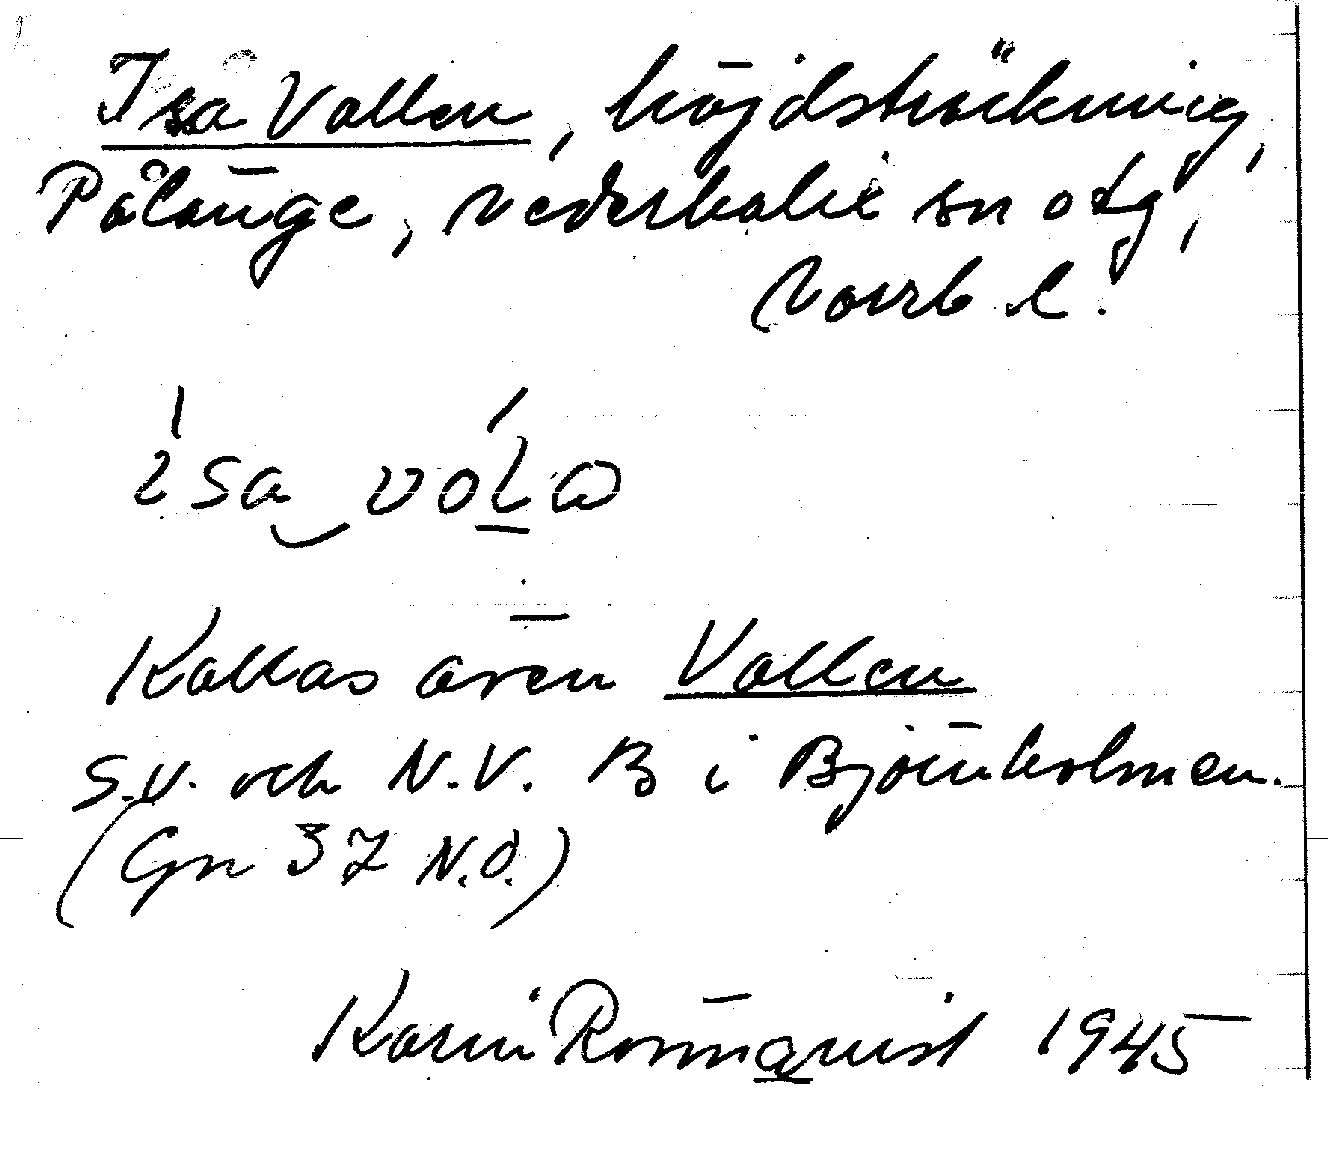 Isa Vallen, höjdsträckning,
Pålänge, Nederkalix sn o tg,
Norrb l.
isa vola
Kallas även Vallen
S.V. och N.V. B i Björnholmen.
(Gn 37 N.O.)
Karin Rönnquist 1945